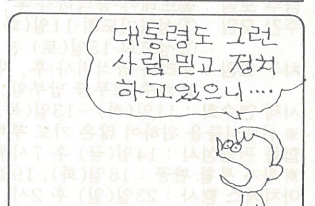 대통령도 그런
사람 믿고 정치
하고있으니....